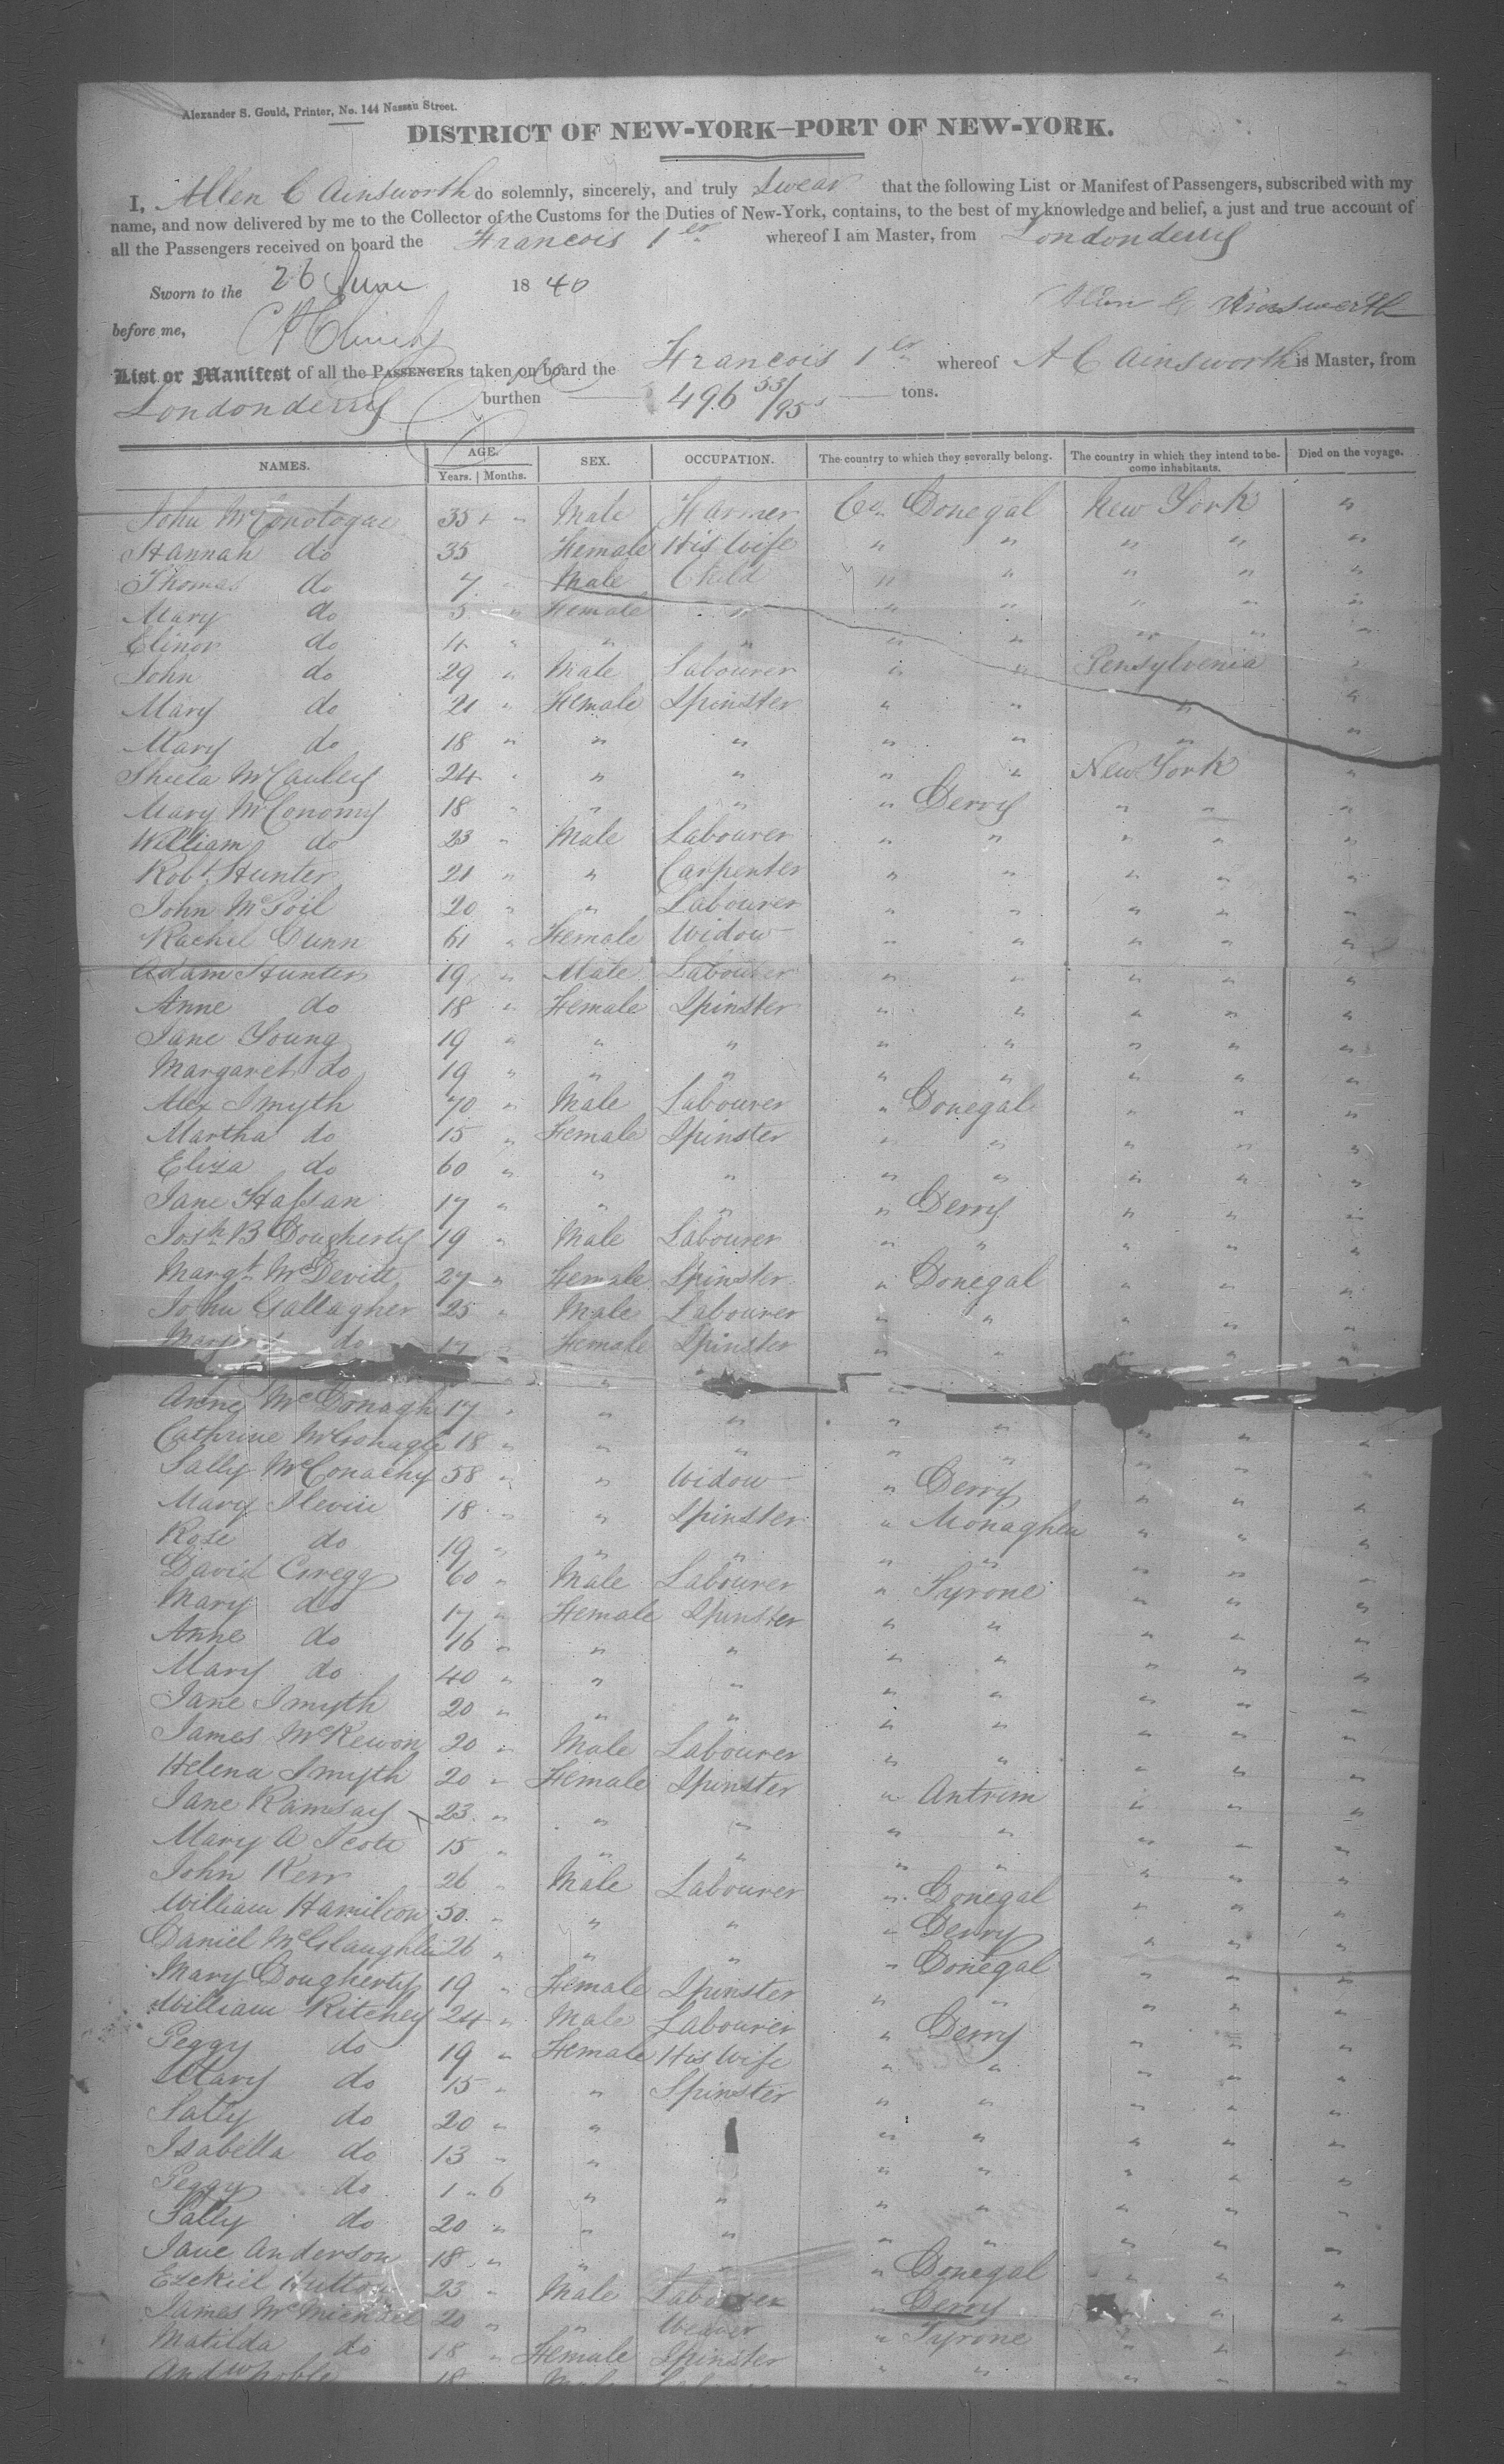 Alexander S. Gould, Printer, No. 144 Nassau Street.
DISTRICT OF NEW-YORK—PORT OF NEW-YORK.
I, Allen C Ainsworth do solemnly, sincerely, and truly Swear that the following List or Manifest of Passengers, subscribed with my
name, and now delivered by me to the Collector of the Customs for the Duties of New-York, contains, to the best of my knowledge and belief, a just and true account of
all the Passengers received on board the Francois 1er whereof I am Master, from Londonderry
Sworn to the 26 June 1840
Allen C Ainsworth
before me,
List or Manifest of all the PASSENGERS taken on board the Francois 1er whereof A C Ainsworth is Master, from
Londonderry burthen 496 53/95s tons.
NAMES. AGE. Years. Months. SEX. OCCUPATION. The country to which they severally belong. The country in which they intend to become inhabitants. Died on the voyage.
John McConologue 35 " Male Farmer Co. Donegal New York "
Hannah do 35 Female His Wife " " " " "
Thomas do 7 " Male Child " " " " "
Mary do 5 " Female " " " " " "
Elinor do 4 " " " " " " " "
John do 29 " Male Labourer " " Pensylvenia "
Mary do 21 " Female Spinster " " " "
Mary do 18 " " " " " " "
Sheela McCauley 24 " " " " " New York "
Mary McConomy 18 " " " " Derry " " "
William do 23 " Male Labourer " " " " "
Robt Hunter 21 " " Carpenter " " " " "
John McPoil 20 " " Labourer " " " " "
Rachel Gunn 61 " Female Widow " " " " "
Adam Hunter 19 " Male Labourer " " " " "
Anne do 18 " Female Spinster " " " " "
Jane Young 19 " " " " " " " "
Margaret do 19 " " " " " " " "
Alex Smyth 70 " Male Labourer " Donegal " " "
Martha do 15 " Female Spinster " " " " "
Eliza do 60 " " " " " " " "
Jane Hassan 17 " " " " Derry " " "
Josh B Dougherty 19 " Male Labourer " " " " "
Margt McDevitt 27 " Female Spinster " Donegal " " "
John Gallagher 25 " Male Labourer " " " " "
do 17 " Female Spinster " " " " "
Anne McDonagh 17 " " " " " " " "
Cathrine McGonagle 18 " " " " " " " "
Sally McConachy 58 " " Widow " Derry " " "
Mary Slevin 18 " " Spinster " Monaghen " " "
Rose do 19 " " " " " " " "
David Gregg 60 " Male Labourer " Tyrone " " "
Mary do 17 " Female Spinster " " " " "
Anne do 16 " " " " " " " "
Mary do 40 " " " " " " " "
Jane Smyth 20 " " " " " " " "
James McKewon 20 " Male Labourer " " " " "
Helena Smyth 20 " Female Spinster " Antrim " " "
Jane Ramsay 23 " " " " " " " "
Mary A Scott 15 " " " " " " " "
John Kerr 26 " Male Labourer " Donegal " " "
William Hamilton 50 " " " " Derry " " "
Daniel McGlaughlin 26 " " " " Donegal " " "
Mary Dougherty 19 " Female Spinster " " " " "
William Ritchey 24 " Male Labourer " Derry " " "
Peggy do 19 " Female His Wife " " " " "
Mary do 15 " " Spinster " " " " "
Sally do 20 " " " " " " "
Isabella do 13 " " " " " " "
Peggy do 1 " 6 " " " " " " "
Sally do 20 " " " " " " " "
Jane Anderson 18 " " " " Donegal " " "
Ezekiel Hutton 23 " Male Labourer " Derry " "
James McMichael 20 " " Weaver " Tyrone " " "
Matilda do 18 " Female Spinster " " " " "
Andw Noble 18 Male